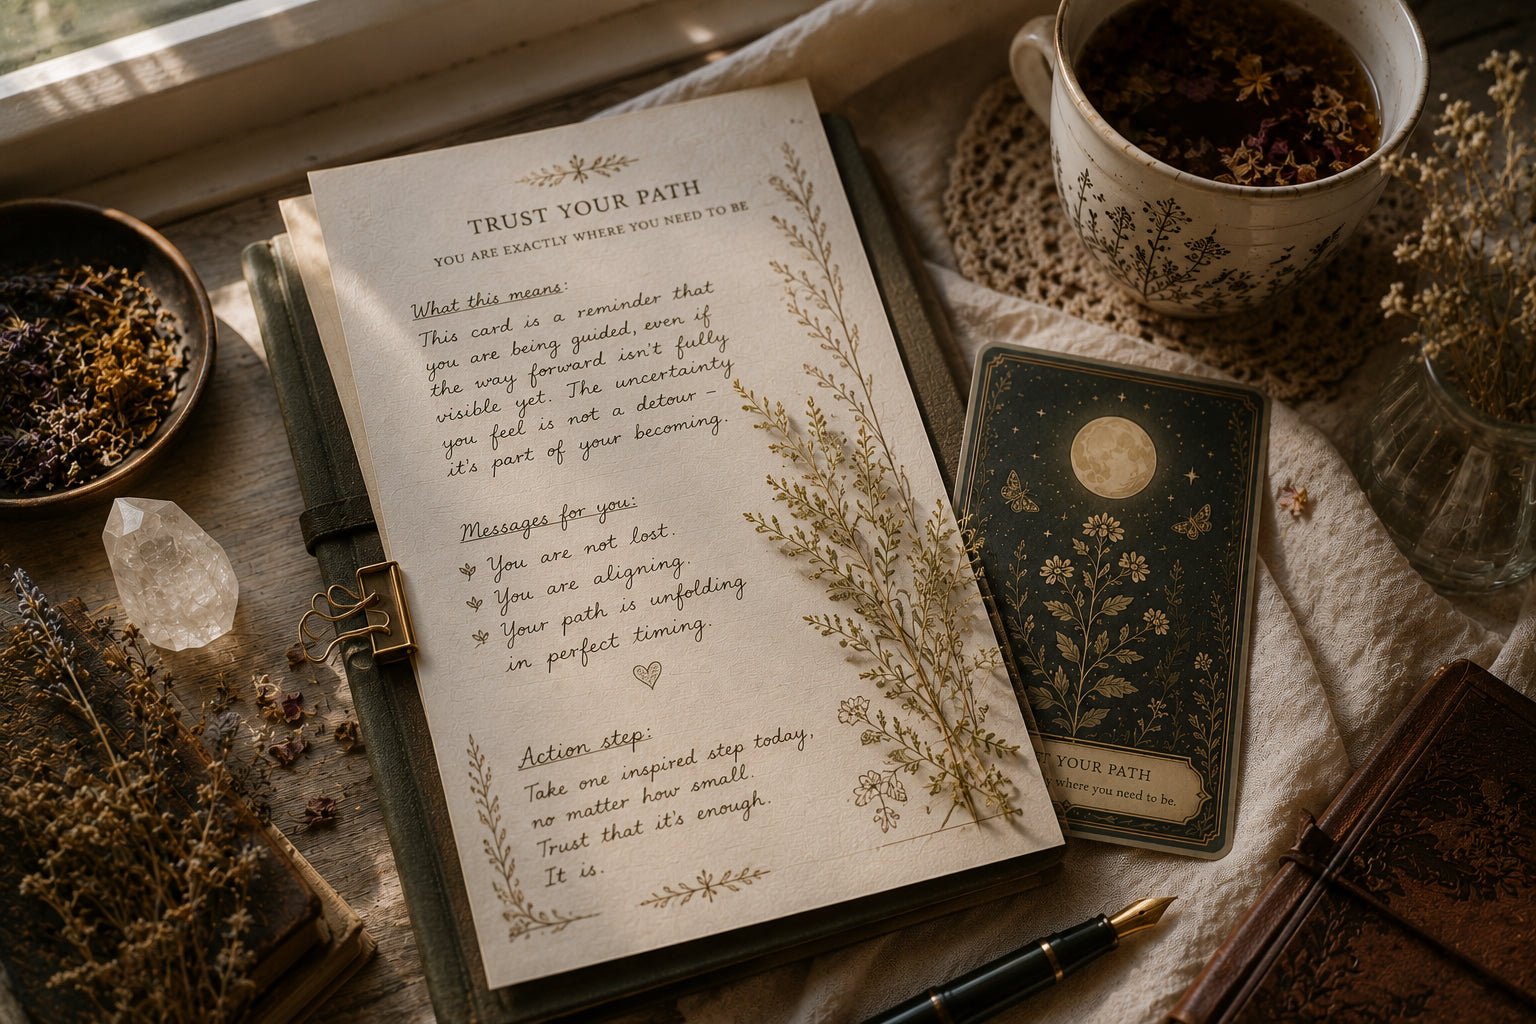 TRUST YOUR PATH
YOU ARE EXACTLY WHERE YOU NEED TO BE
What this means:
This card is a reminder that
you are being guided, even if
the way forward isn't fully
visible yet. The uncertainty
you feel is not a detour –
it's part of your becoming.
Messages for you:
You are not lost.
You are aligning.
Your path is unfolding
in perfect timing.
Action step:
Take one inspired step today,
no matter how small.
Trust that it's enough.
It is.
YOUR PATH
where you need to be.